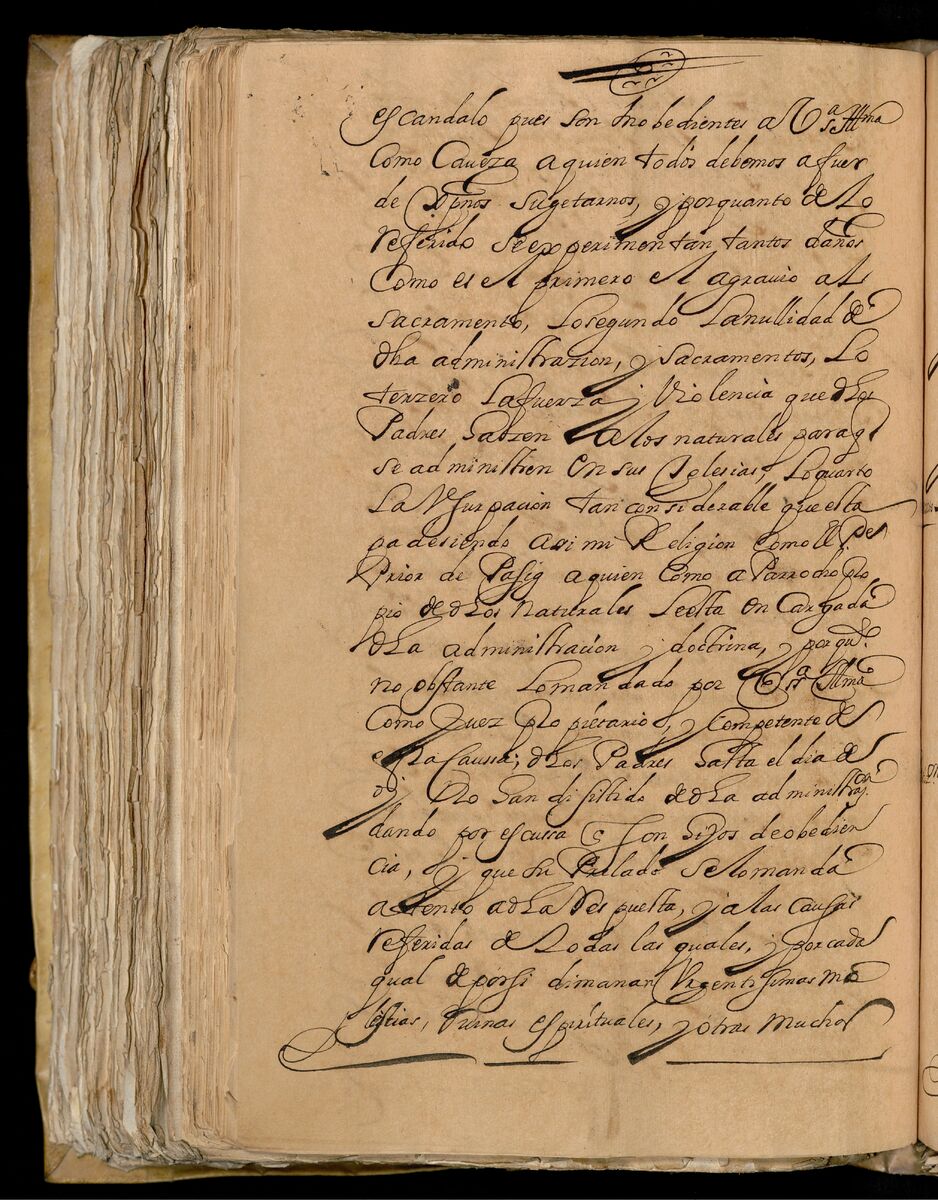 escandalo pues son Inobedientes a V.ª S.ª Illma
Como Caveza a quien todos debemos a fuer
de Xpnos Sugetarnos, y porquanto de Lo
referido se experimentan tantos daños
Como es el primero el agravio al
sacramento, Lo segundo La nullidad de
dha administrazion, y sacramentos, Lo
terzero La fuerza y Violencia que dhos
Padres hazen a los naturales para q
se administren en sus Iglesias, Lo quarto
La Vsurpacion tan considerable que esta
padesiendo asi mi Religion como el Pe
Prior de Pasig a quien como a Parrocho pro
pio de dhos Naturales Le esta encargada
dha administracion y doctrina, y porque
no obstante Lo mandado por V.ª S.ª Illma
Como Juez propietario, y Competente de
esta Caussa; dhos Padres hasta el dia de
oy No han dissistido de dha administraon
dando por escussa q son hijos de obedien
cia, y que su Prelado se lo manda
atento a dha Respuesta, y a las causas
referidas de todas las quales, y por cada
qual de por si dimanan Vrgentissimas mo
lestias, Ruinas espirituales, y otras muchas